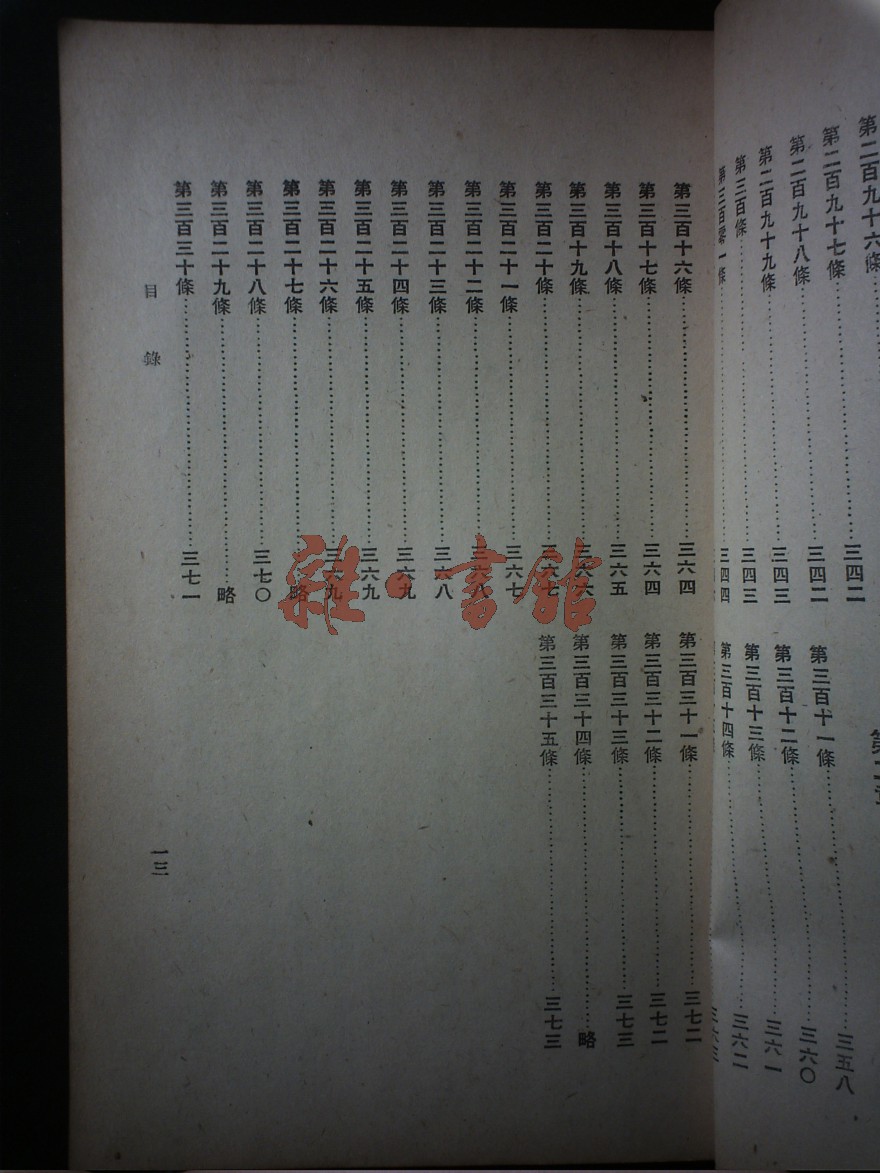 第二百九十六條
第二百九十七條……三四二
第二百九十八條……三四二
第二百九十九條……三四三
第三百條……三四三
第三百零一條……三四四
第三百十一條……三五八
第三百十二條……三六〇
第三百十三條……三六一
第三百十四條……三六二
三六三
第三百十六條……三六四
第三百十七條……三六四
第三百十八條……三六五
第三百十九條……三六六
第三百二十條……三六七
第三百二十一條……三六七
第三百二十二條……三六八
第三百二十三條……三六八
第三百二十四條……三六九
第三百二十五條……三六九
第三百二十六條……三六九
第三百二十七條……略
第三百二十八條……三七〇
第三百二十九條……略
第三百三十條……三七一
第三百三十一條……三七二
第三百三十二條……三七二
第三百三十三條……三七三
第三百三十四條……略
第三百三十五條……三七三
目錄
一三
雜·書館